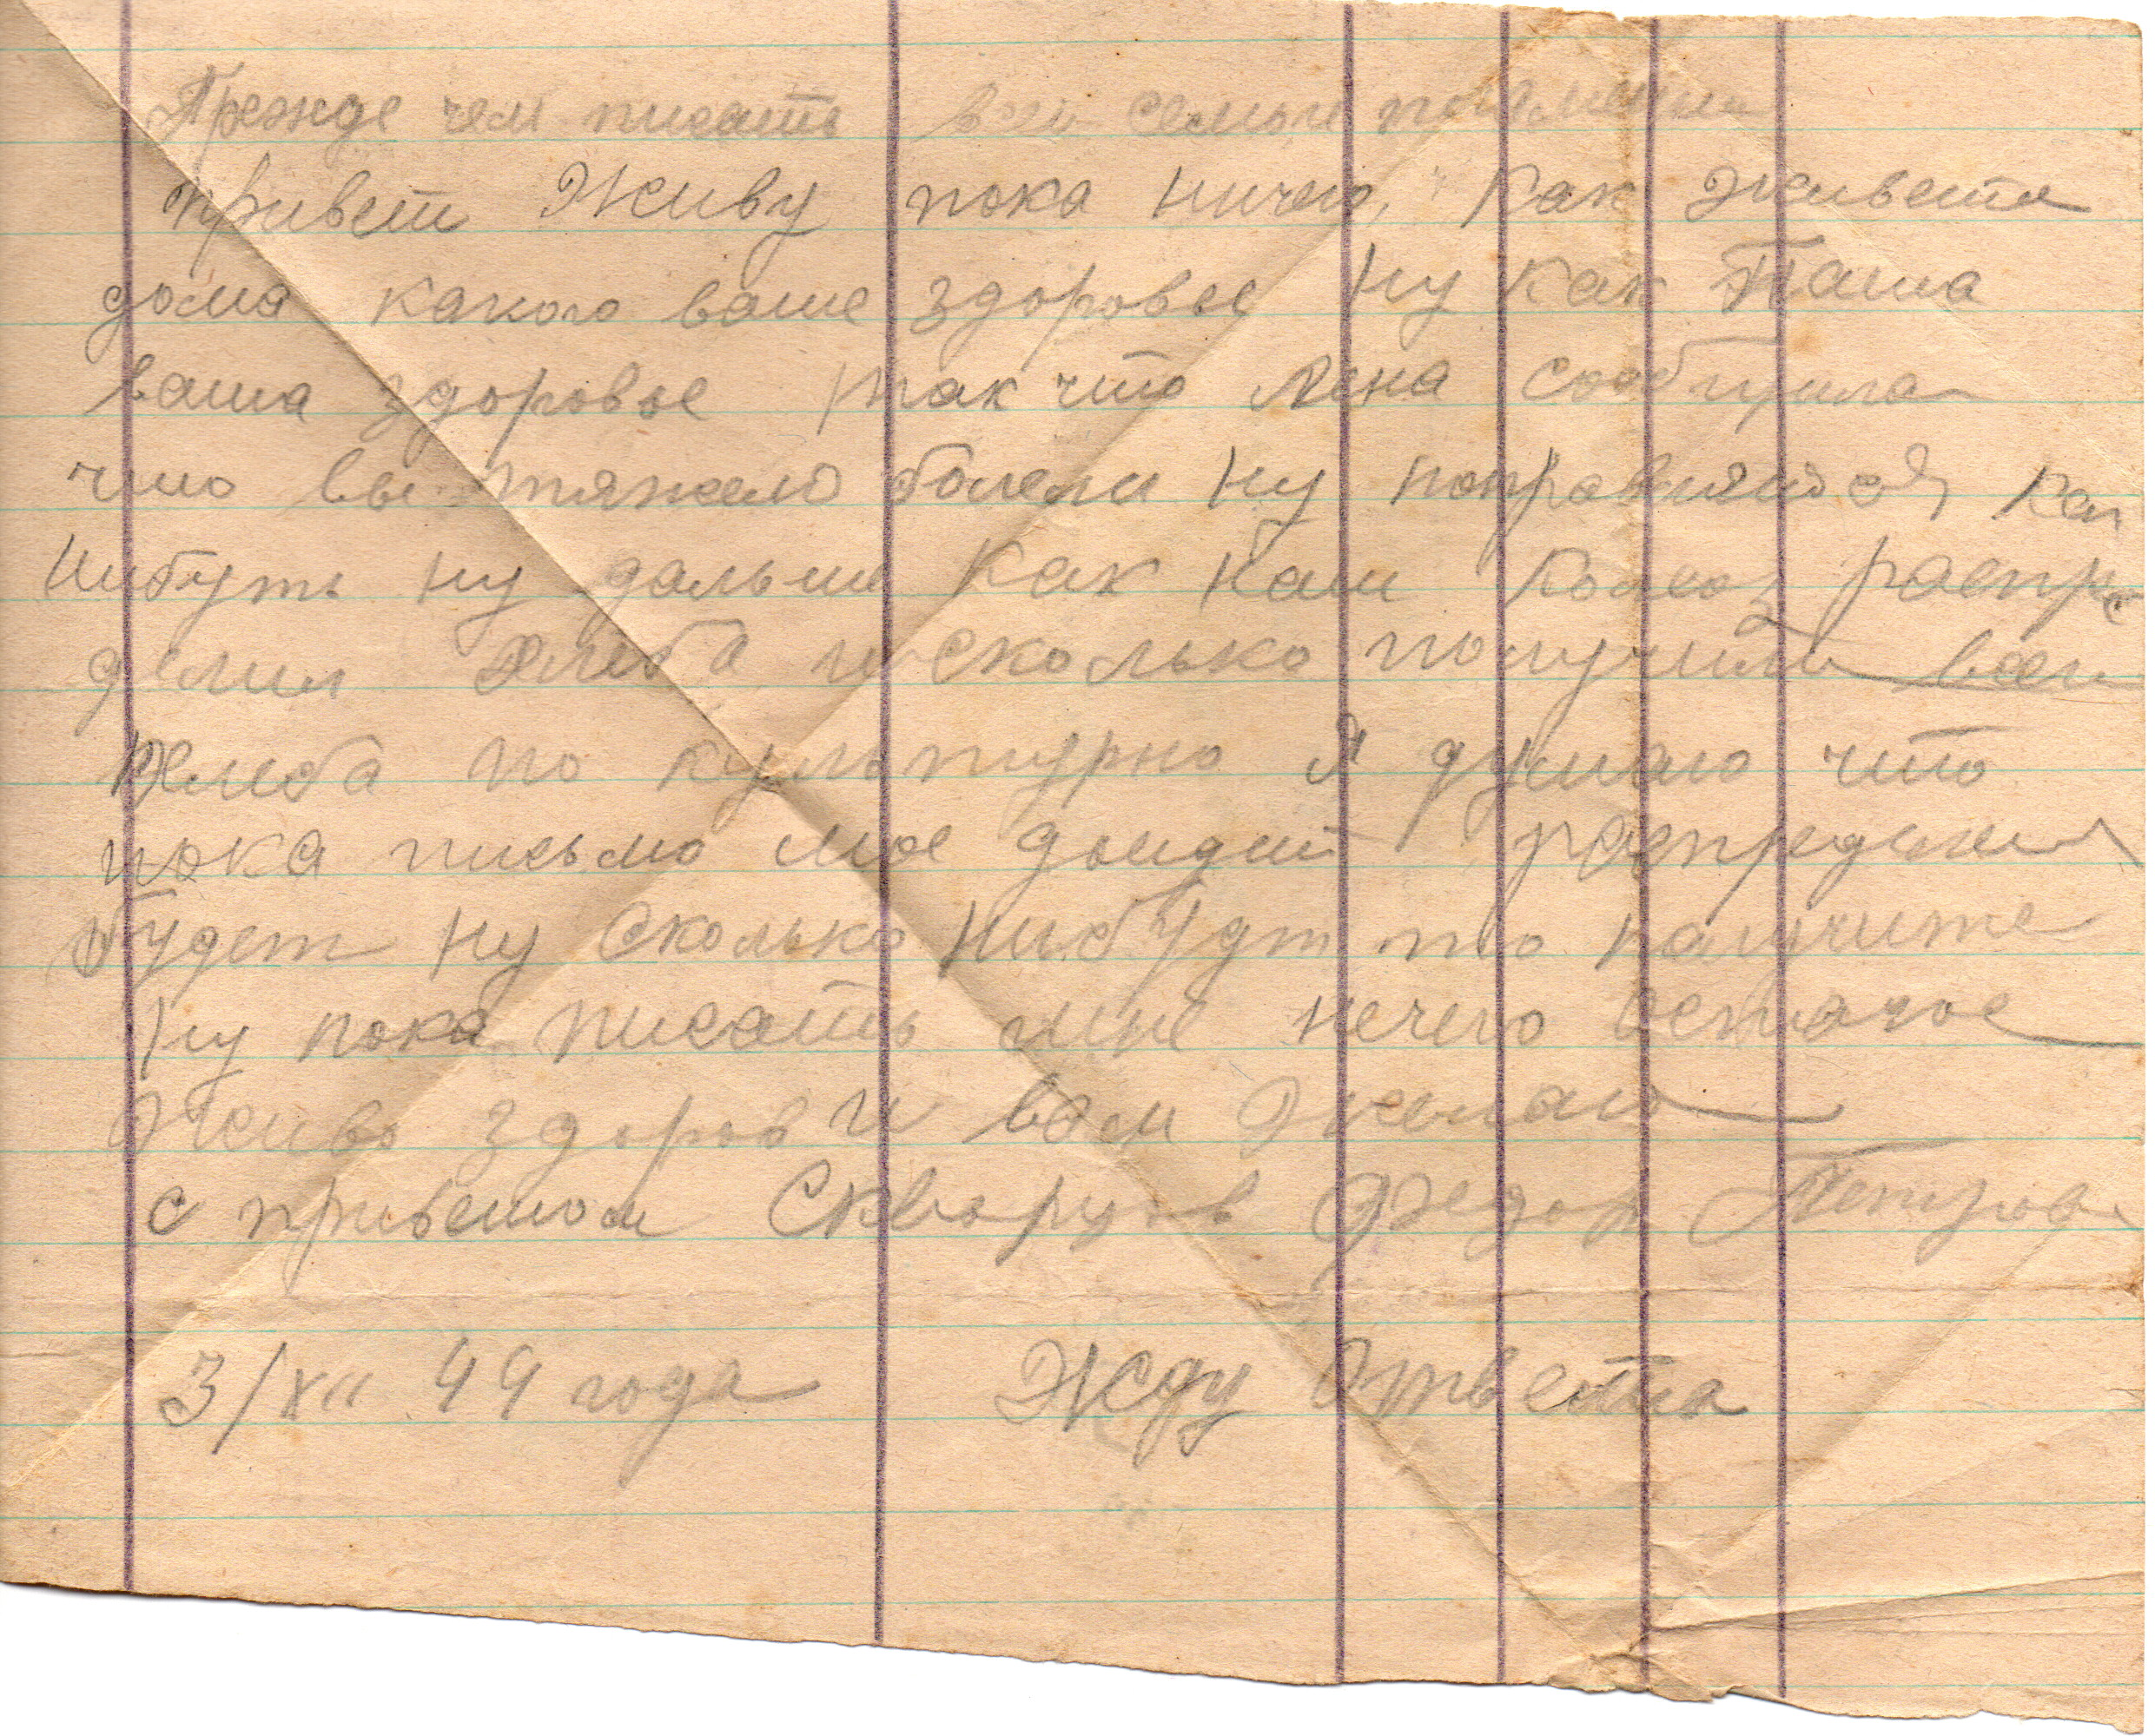 Прежде чем писать всей семьи
привет Живу пока ничего, Как живете
дома какого ваше здоровье Ну как Паша
ваша здоровье так что Лена сообщила
что вы тяжело болели Ну поправитися как
Нибуть ну дальше Как Наш Колхоз распре
делил хлеба и сколько получили всего
хлеба по культурно я думаю что
пока письмо мое доидет распределил
будет Ну Сколько Нибудт то получите
Ну пока писать мне нечего остаюсь
Живо здоров и вам желаю
с приветом Скворцов Федор Петров
3/XII 44 года Жду Ответа